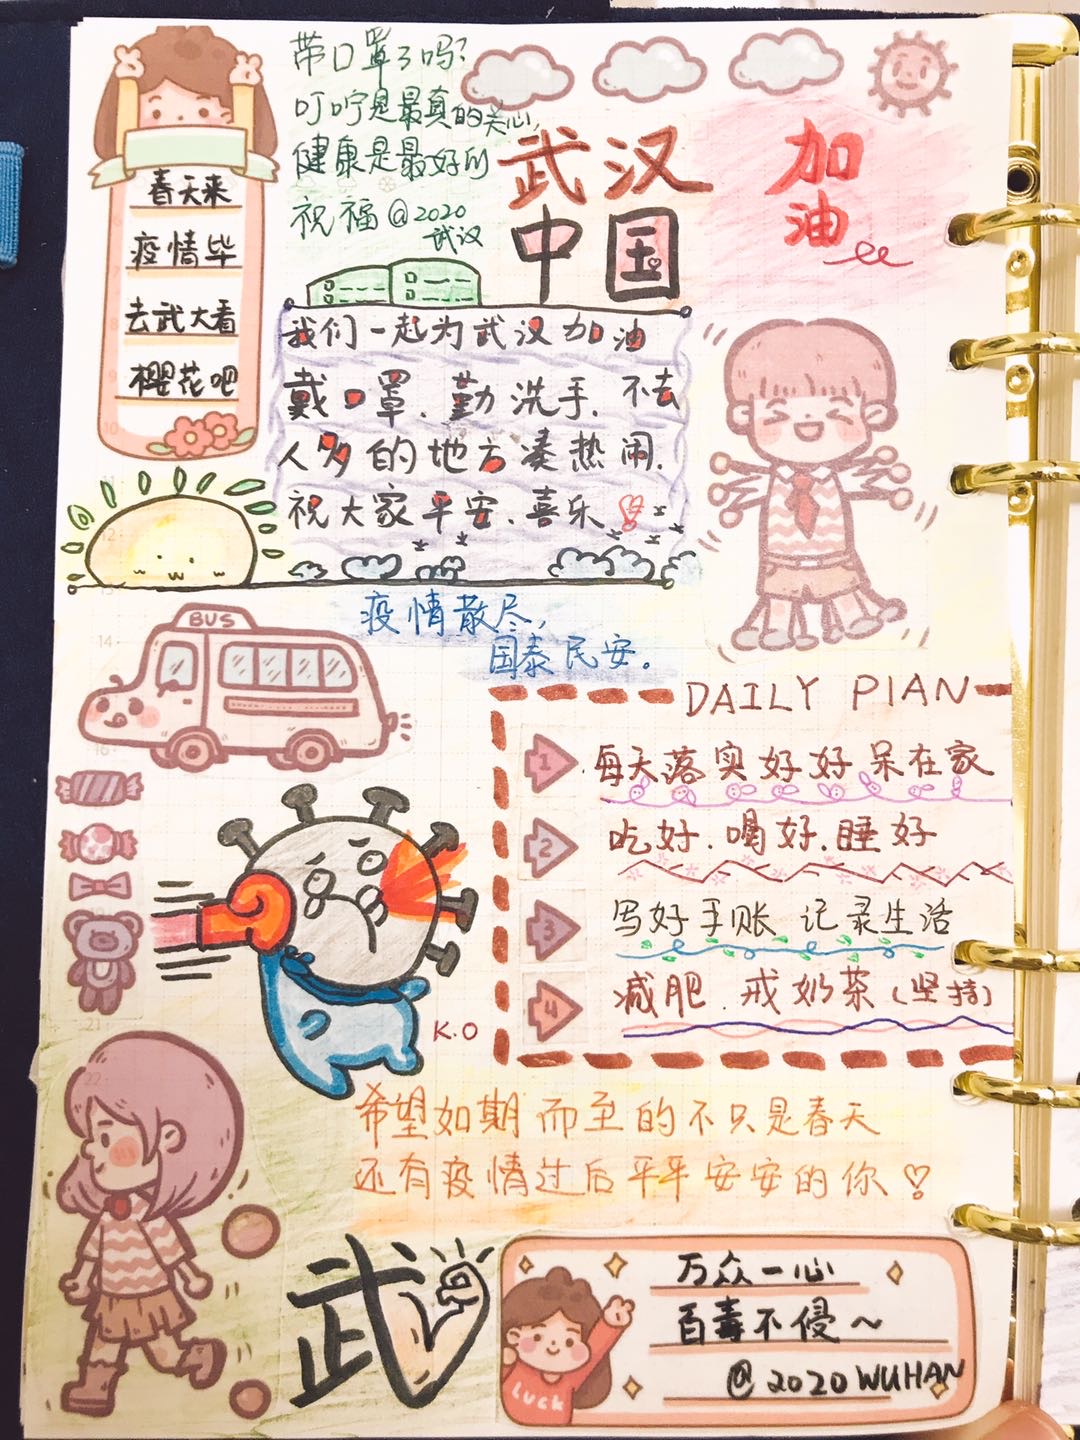 带口罩了吗?
叮咛是最真的关心,
健康是最好的
祝福@2020
武汉
春天来
疫情毕
去武大看
樱花吧
武汉
中国
加
油
我们一起为武汉加油
戴口罩、勤洗手、不去
人多的地方凑热闹.
祝大家平安、喜乐
疫情散尽,
国泰民安。
BUS
DAILY PlAN
1 每天落实好好呆在家
2 吃好.喝好.睡好
3 写好手账 记录生活
4 减肥.戒奶茶(坚持)
K.O
希望如期而至的不只是春天
还有疫情过后平平安安的你
武
万众一心
百毒不侵~
@2020WUHAN
LUCK